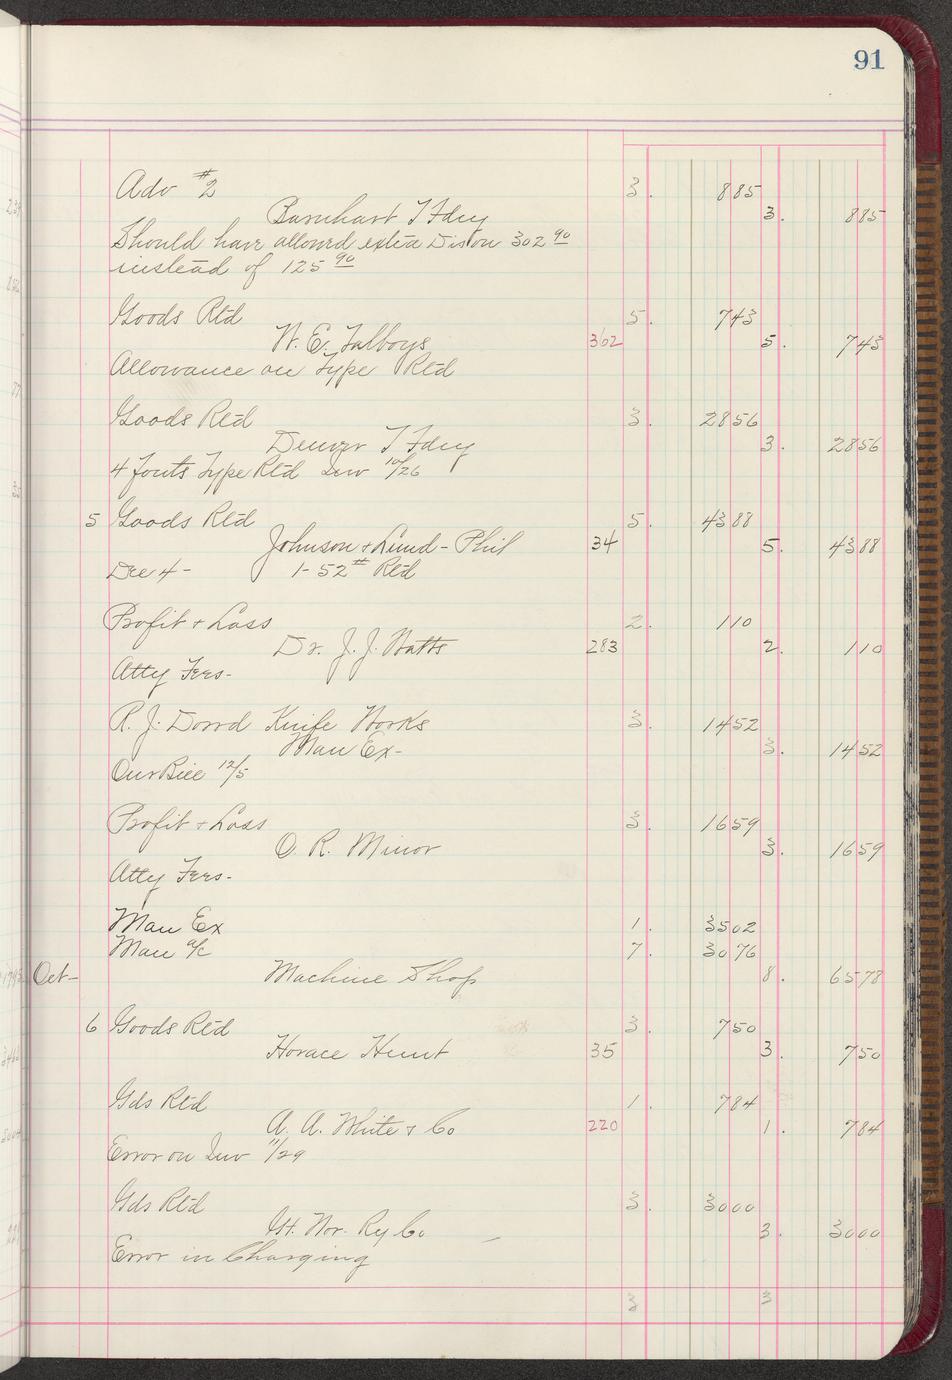 91
Adv #2 3. 885
Barnhart T Fdry 3. 885
Should have allowed extra Dis on 302 90
instead of 125 90
Goods Rtd 5. 743
W. E. Talboys 362 5. 743
Allowance on Type Rtd
Goods Rtd 3. 2856
Denver T Fdry 3. 2856
4 fonts Type Rtd Inv 10/26
5 Goods Rtd 5. 4388
Johnson & Lund - Phil 34 5. 4388
Dec 4 - 1-52# Rtd
Profit & Loss 2. 110
Dr. J. J. Watts 283 2. 110
Atty Fees -
R. J. Dowd Knife Works 3. 1452
Man Ex - 3. 1452
Our Bill 12/5
Profit & Loss 3. 1659
O. R. Minor 3. 1659
Atty Fees -
Man Ex 1. 3502
Man a/c 7. 3076
Oct - Machine Shop 8. 6578
6 Goods Rtd 3. 750
Horace Hunt 35 3. 750
Gds Rtd 1. 784
A. A. White & Co 220 1. 784
Error on Inv 11/29
Gds Rtd 3. 3000
Gt. Nor. Ry Co 3. 3000
Error in Charging
3 3